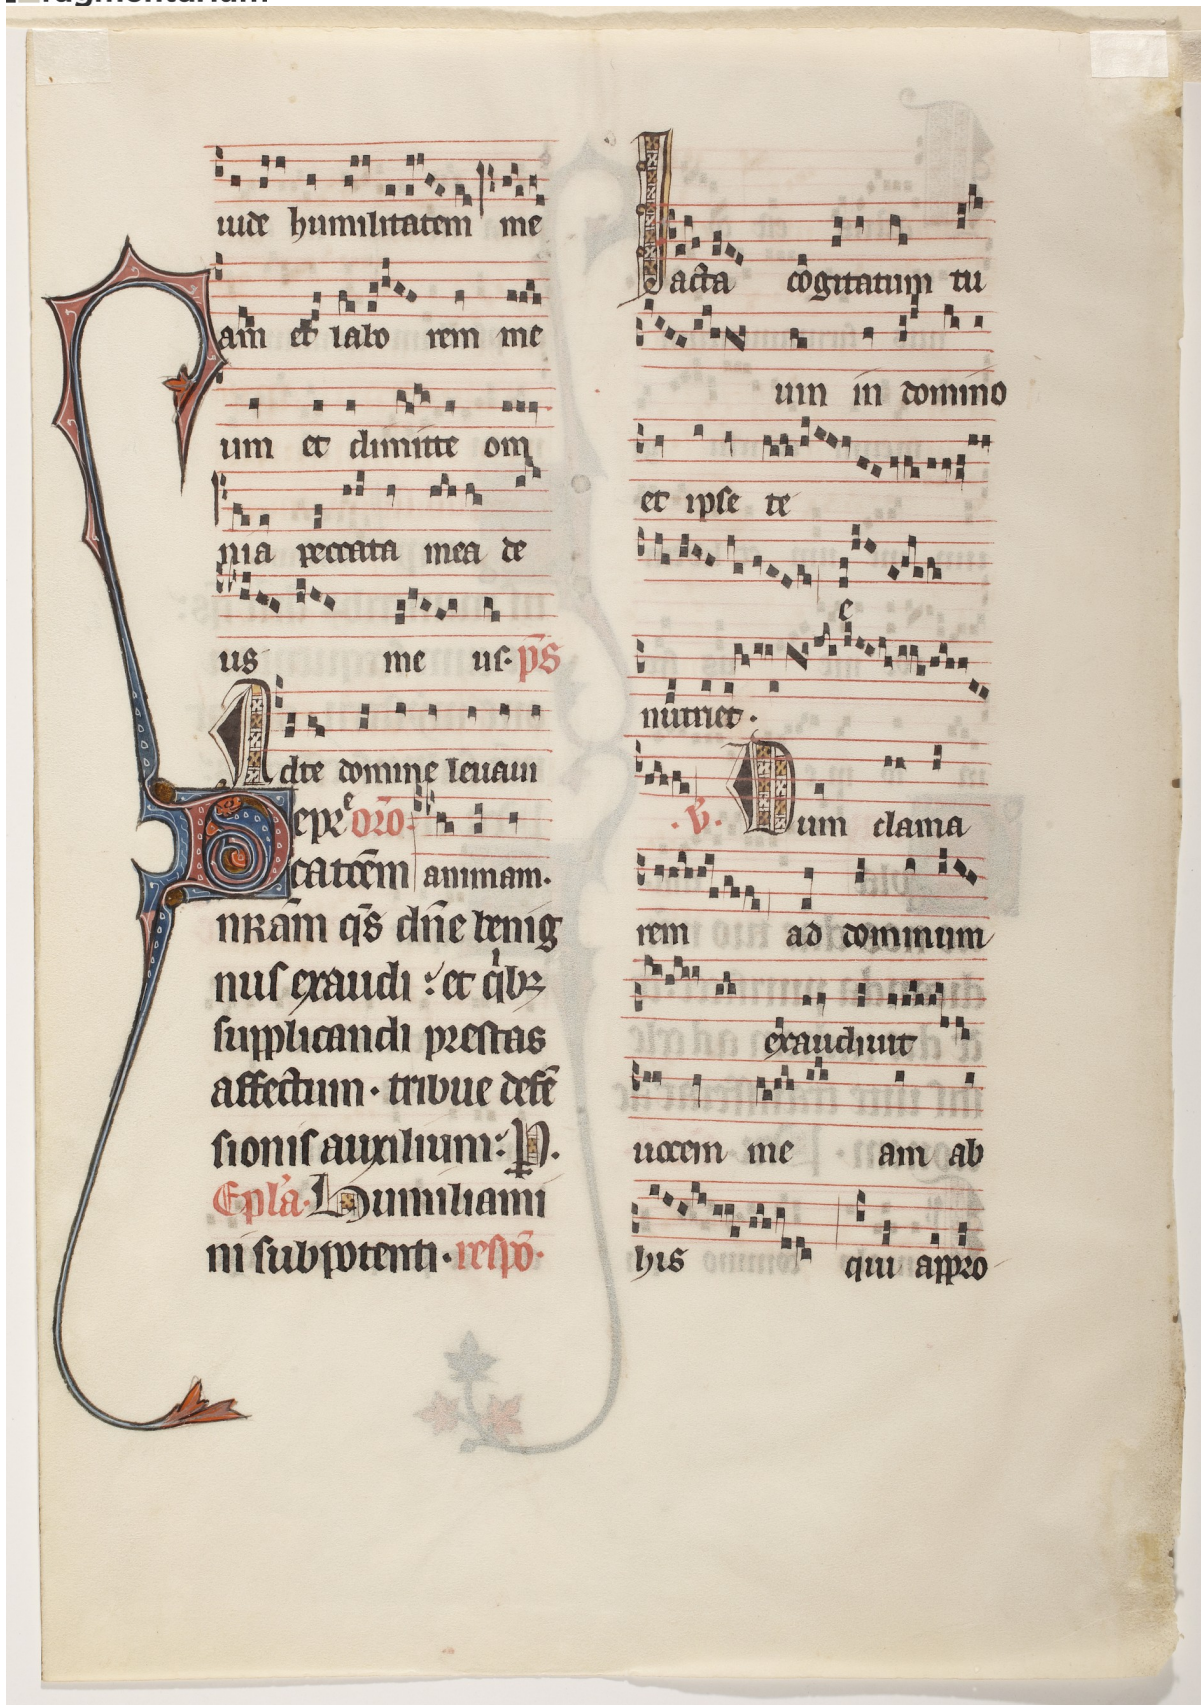 uide humilitatem me
am et labo rem me
um et dimitte om
nia peccata mea de
us me us. p̄s
Ad te domine leuaui
animam.
nr̄am q̄s dn̄e benig
nus exaudi : et qͥbꝫ
supplicandi prestas
affectum · tribue defē
sionis auxilium : P.
Epl̄a. Humiliami
ni sub potenti · respō.
Iacta cogitatum tu
um in domino
et ipse te
e
nutriet ·
. V̄. Dum clama
rem ad dominum
exaudiuit
uocem me am ab
his qui appro